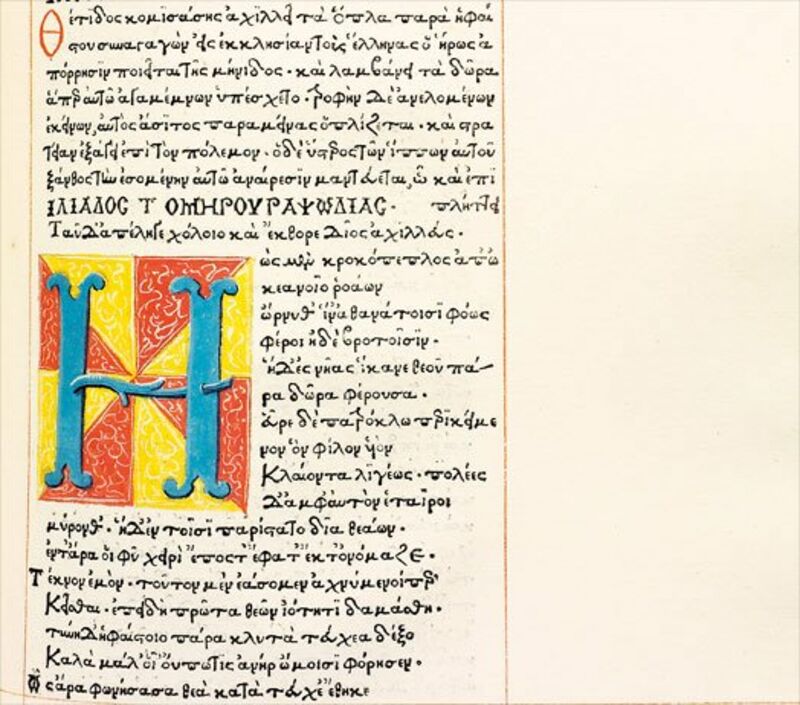 Θέτιδος κομισάσης ἀχιλλεῖ τὰ ὅπλα παρὰ ἡφαί
στου συναγαγὼν εἰς ἐκκλησίαν τοὺς ἕλληνας ὁ ἥρως ἀ
πόρρησιν ποιεῖται τῆς μήνιδος· καὶ λαμβάνει τὰ δῶρα
ἅπερ αὐτῷ ἀγαμέμνων ὑπέσχετο· τροφὴν δὲ ἀνελομένων
ἐκείνων, αὐτὸς ἄσιτος παραμείνας ὁπλίζεται· καὶ στρα
τείαν ἐξάγει ἐπὶ τὸν πόλεμον· ὁ δὲ ἕτερος τῶν ἵππων αὐτοῦ
ξάνθος τὴν ἐσομένην αὐτῷ ἀναίρεσιν μαντεύεται, ᾧ καὶ ἐπι
ΙΛΙΑΔΟΣ Τ ΟΜΗΡΟΥ ΡΑΨΩΔΙΑΣ· πλήττει
Ταῦ δ' ἀπέληγε χόλοιο καὶ ἔκθορε δῖος ἀχιλλεύς·
Ηὼς μὲν κροκόπεπλος ἀπ' ὠ
κεανοῖο ῥοάων
ὤρνυθ' ἵν' ἀθανάτοισι φόως
φέροι ἠδὲ βροτοῖσιν·
ἡ δ' ἐς νῆας ἵκανε θεοῦ πά-
ρα δῶρα φέρουσα·
εὗρε δὲ πατρόκλῳ περικείμε
νον ὃν φίλον υἱὸν
Κλαίοντα λιγέως· πολέες
δ' ἀμφ' αὐτὸν ἑταῖροι
μύρονθ'· ἡ δ' ἐν τοῖσι παρίστατο δῖα θεάων·
ἔν τ' ἄρα οἱ φῦ χειρὶ ἔπος τ' ἔφατ' ἔκ τ' ὀνόμαζε·
Τέκνον ἐμὸν· τοῦτον μὲν ἐάσομεν ἀχνύμενοί περ
Κεῖσθαι· ἐπειδὴ πρῶτα θεῶν ἰότητι δαμάσθη·
τύνη δ' ἡφαίστοιο πάρα κλυτὰ τεύχεα δέξο
Καλὰ μάλ' οἷ' οὔπω τις ἀνὴρ ὤμοισι φόρησεν·
Ὣς ἄρα φωνήσασα θεὰ κατὰ τεύχε' ἔθηκε